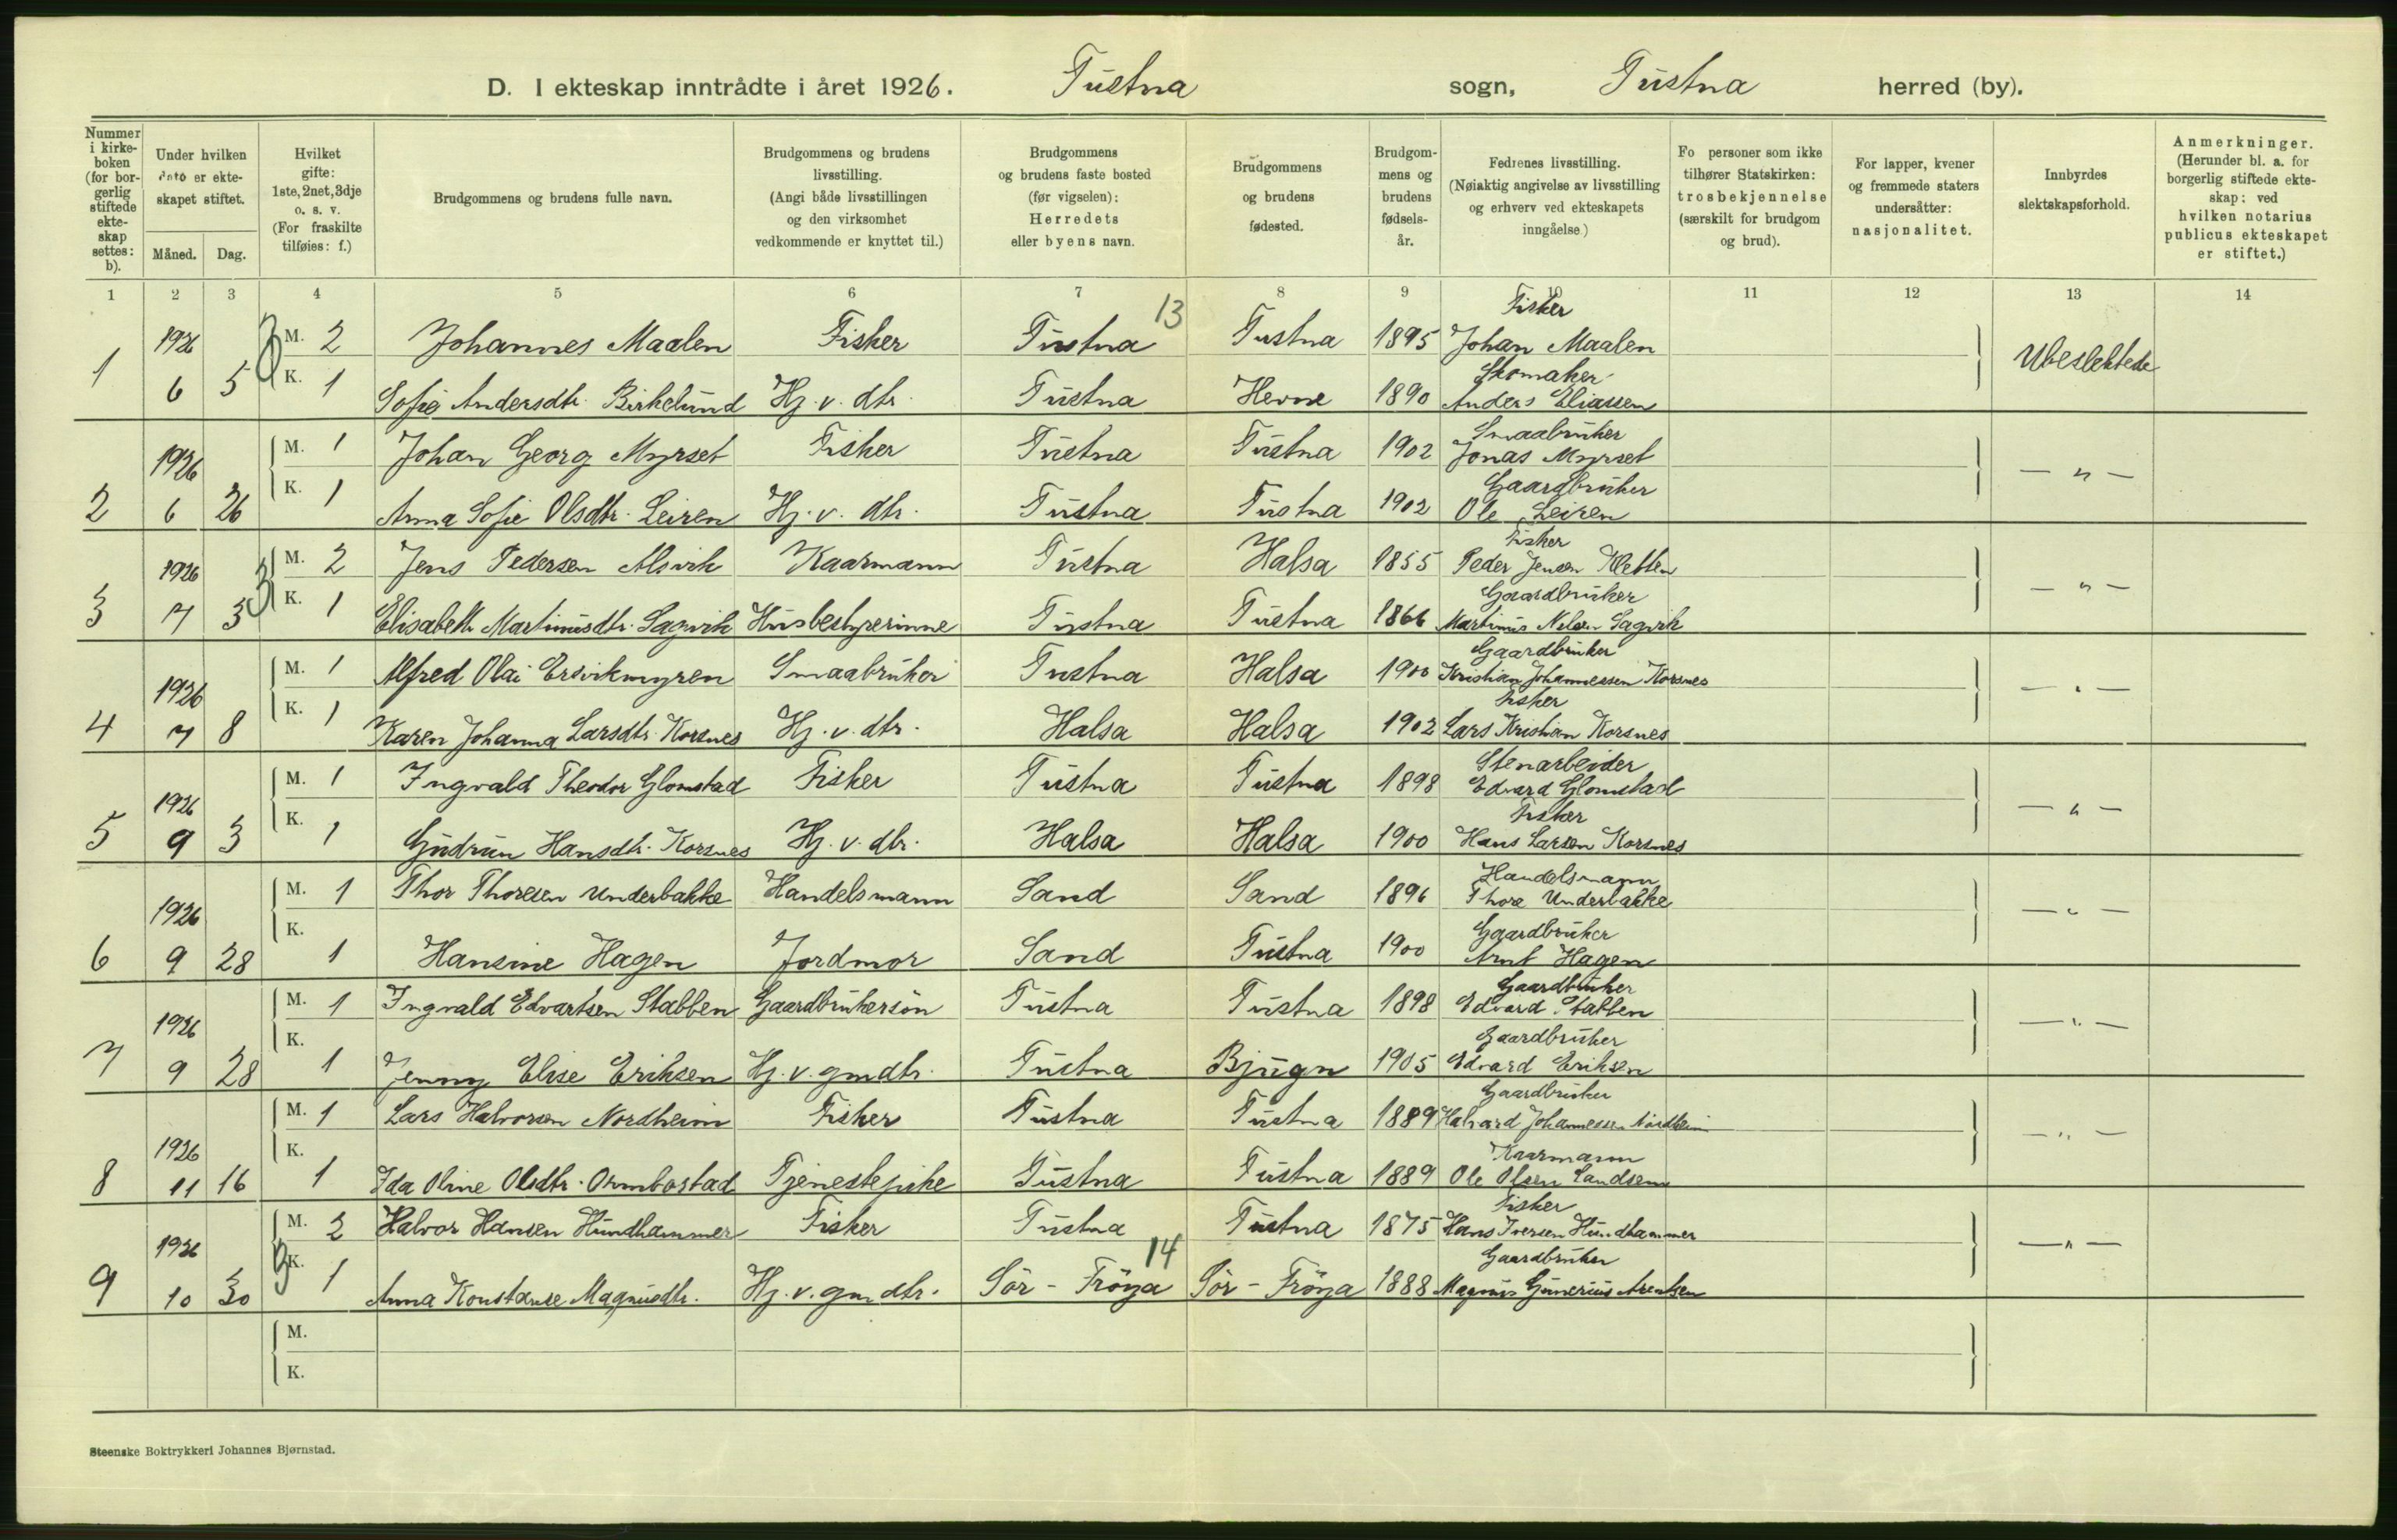 D. I ekteskap inntrådte i året 1926. Tustna sogn, Tustna herred (by).
Nummer i kirkeboken (for borgerlig stiftede ekteskap settes: b).
Under hvilken dato er ekteskapet stiftet.
Måned. Dag.
Hvilket gifte: 1ste, 2net, 3dje o. s. v. (For fraskilte tilføies: f.)
Brudgommens og brudens fulle navn.
Brudgommens og brudens livsstilling. (Angi både livsstillingen og den virksomhet vedkommende er knyttet til.)
Brudgommens og brudens faste bosted (før vigselen): Herredets eller byens navn.
Brudgommens og brudens fødested.
Brudgommens og brudens fødselsår.
Fedrenes livsstilling. (Nøiaktig angivelse av livsstilling og erhverv ved ekteskapets inngåelse)
Fo personer som ikke tilhører Statskirken: trosbekjennelse (særskilt for brudgom og brud).
For lapper, kvener og fremmede staters undersåtter: nasjonalitet.
Innbyrdes slektskapsforhold.
Anmerkninger. (Herunder bl. a. for borgerlig stiftede ekteskap: ved hvilken notarius publicus ekteskapet er stiftet.)
1 2 3 4 5 6 7 8 9 10 11 12 13 14
13
Fisker
1926 M. 2 Johannes Maalen Fisker Tustna Tustna 1895 Johan Maalen
Ubeslektede
Skomaker
1 6 5 K. 1 Sofie Andersdtr. Birkelund Hj. v. dtr. Tustna Hevne 1890 Anders Eliassen
Smaabruker
1926 M. 1 Johan Georg Myrset Fisker Tustna Tustna 1902 Jonas Myrset
— " —
Gaardbruker
2 6 26 K. 1 Anna Sofie Olsdtr. Leiren Hj. v. dtr. Tustna Tustna 1902 Ole Leiren
Fisker
1926 M. 2 Jens Pedersen Alsvik Kaarmann Tustna Halsa 1855 Peder Jensen Kletten
— " —
Gaardbruker
3 7 3 K. 1 Elisabeth Martinusdtr. Sagvik Husbestyrerinne Tustna Tustna 1866 Martinus Nelsen Sagvik
Gaardbruker
1926 M. 1 Alfred Olai Ersvikmyren Smaabruker Tustna Halsa 1900 Kristian Johannessen Korsnes
— " —
Fisker
4 7 8 K. 1 Karen Johanna Larsdtr. Korsnes Hj. v. dtr. Halsa Halsa 1902 Lars Kristian Korsnes
Stenarbeider
1926 M. 1 Ingvald Theodor Glomstad Fisker Tustna Tustna 1898 Edvard Glomstad
— " —
Fisker
5 9 3 K. 1 Gudrun Hansdtr. Korsnes Hj. v. dtr. Halsa Halsa 1900 Hans Larsen Korsnes
Handelsmann
1926 M. 1 Thor Thoresen Underbakke Handelsmann Sand Sand 1896 Thore Underbakke
— " —
Gaardbruker
6 9 28 K. 1 Hansine Hagen Jordmor Sand Tustna 1900 Arnt Hagen
Gaardbruker
1926 M. 1 Ingvald Edvartsen Stabben Gaardbrukersøn Tustna Tustna 1898 Edvard Stabben
— " —
Gaardbruker
7 9 28 K. 1 Jenny Elise Eriksen Hj. v. gmdtr. Tustna Bjugn 1905 Edvard Eriksen
Gaardbruker
1926 M. 1 Lars Halvorsen Nordheim Fisker Tustna Tustna 1889 Halvard Johannessen Nordheim
— " —
Kaarmann
8 11 16 K. 1 Ida Oline Olsdtr. Ormbostad Tjenestepike Tustna Tustna 1889 Ole Olsen Sandsem
Fisker
1926 M. 2 Halvor Hansen Hundhammer Fisker Tustna Tustna 1875 Hans Iversen Hundhammer
— " —
14
Gaardbruker
9 10 30 K. 1 Anna Konstanse Magnusdtr. Hj. v. gmdtr. Sör - Fröya Sör - Fröya 1888 Magnus Gunerius Arentsen
M.
K.
Steenske Boktrykkeri Johannes Bjørnstad.